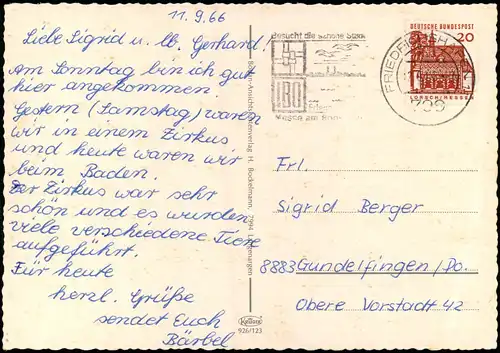 11.9.66
Liebe Sigrid u. lb. Gerhard!
Am Sonntag bin ich gut
hier angekommen.
Gestern (Samstag) waren
wir in einem Zirkus
und heute waren wir
beim Baden.
Der Zirkus war sehr
schön und es wurden
viele verschiedene Tiere
aufgeführt.
Für heute
herzl. Grüße
sendet Euch
Bärbel
H. Bockelmann, 7994 Langenargen
Kellon
926/123
Besucht die schöne Stadt
IBO
Messe am
FRIEDRICHSH
DEUTSCHE BUNDESPOST
20
LORSCH/HESSEN
Frl.
Sigrid Berger
8883 Gundelfingen/Do.
Obere Vorstadt 42